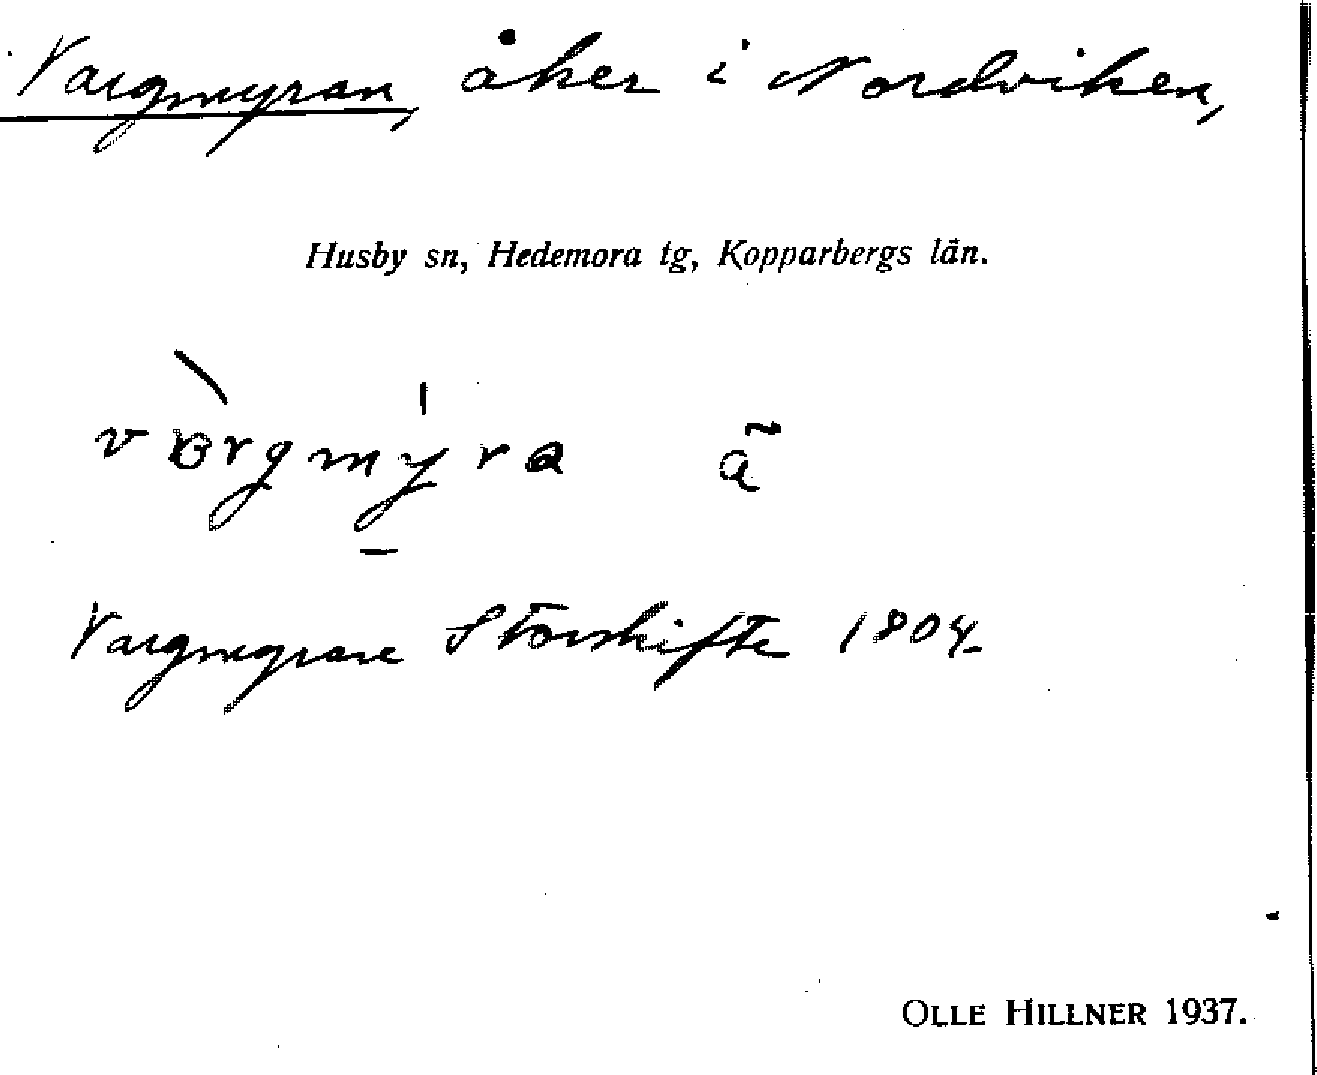 Vargmyran, åker i Nordviken,
Husby sn, Hedemora tg, Kopparbergs län.
Vargmyran Storskifte 1804.
OLLE HILLNER 1937.